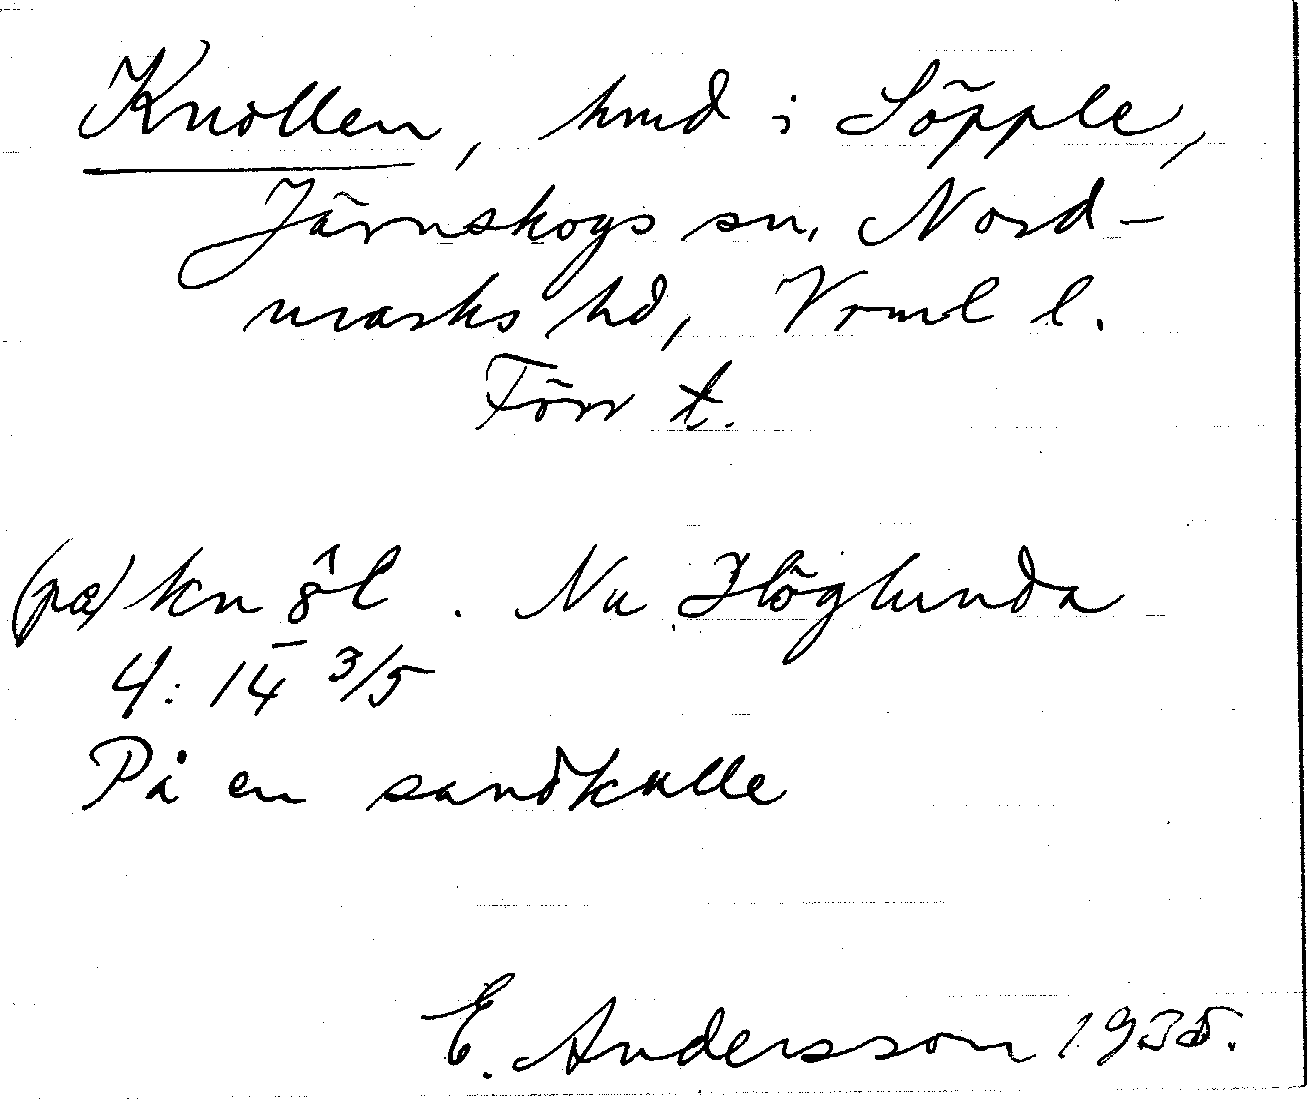 Knollen, hmd i Söpple,
Järnskogs sn, Nord-
marks hd, Vrml l.
Förr t.
(pa) knôl . Nu Höglunda
4:14 3/5
På en sandkulle
E. Andersson 1935.